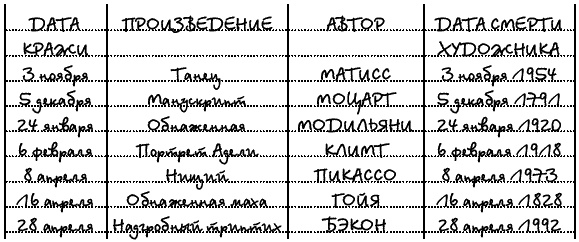 ДАТА ПРОИЗВЕДЕНИЕ АВТОР ДАТА СМЕРТИ
КРАЖИ ХУДОЖНИКА
3 ноября Танец МАТИСС 3 ноября 1954
5 декабря Манускрипт МОЦАРТ 5 декабря 1791
24 января Обнаженная МОДИЛЬЯНИ 24 января 1920
6 февраля Портрет Адели КЛИМТ 6 февраля 1918
8 апреля Нищий ПИКАССО 8 апреля 1973
16 апреля Обнаженная маха ГОЙЯ 16 апреля 1828
28 апреля Надгробный триптих БЭКОН 28 апреля 1992